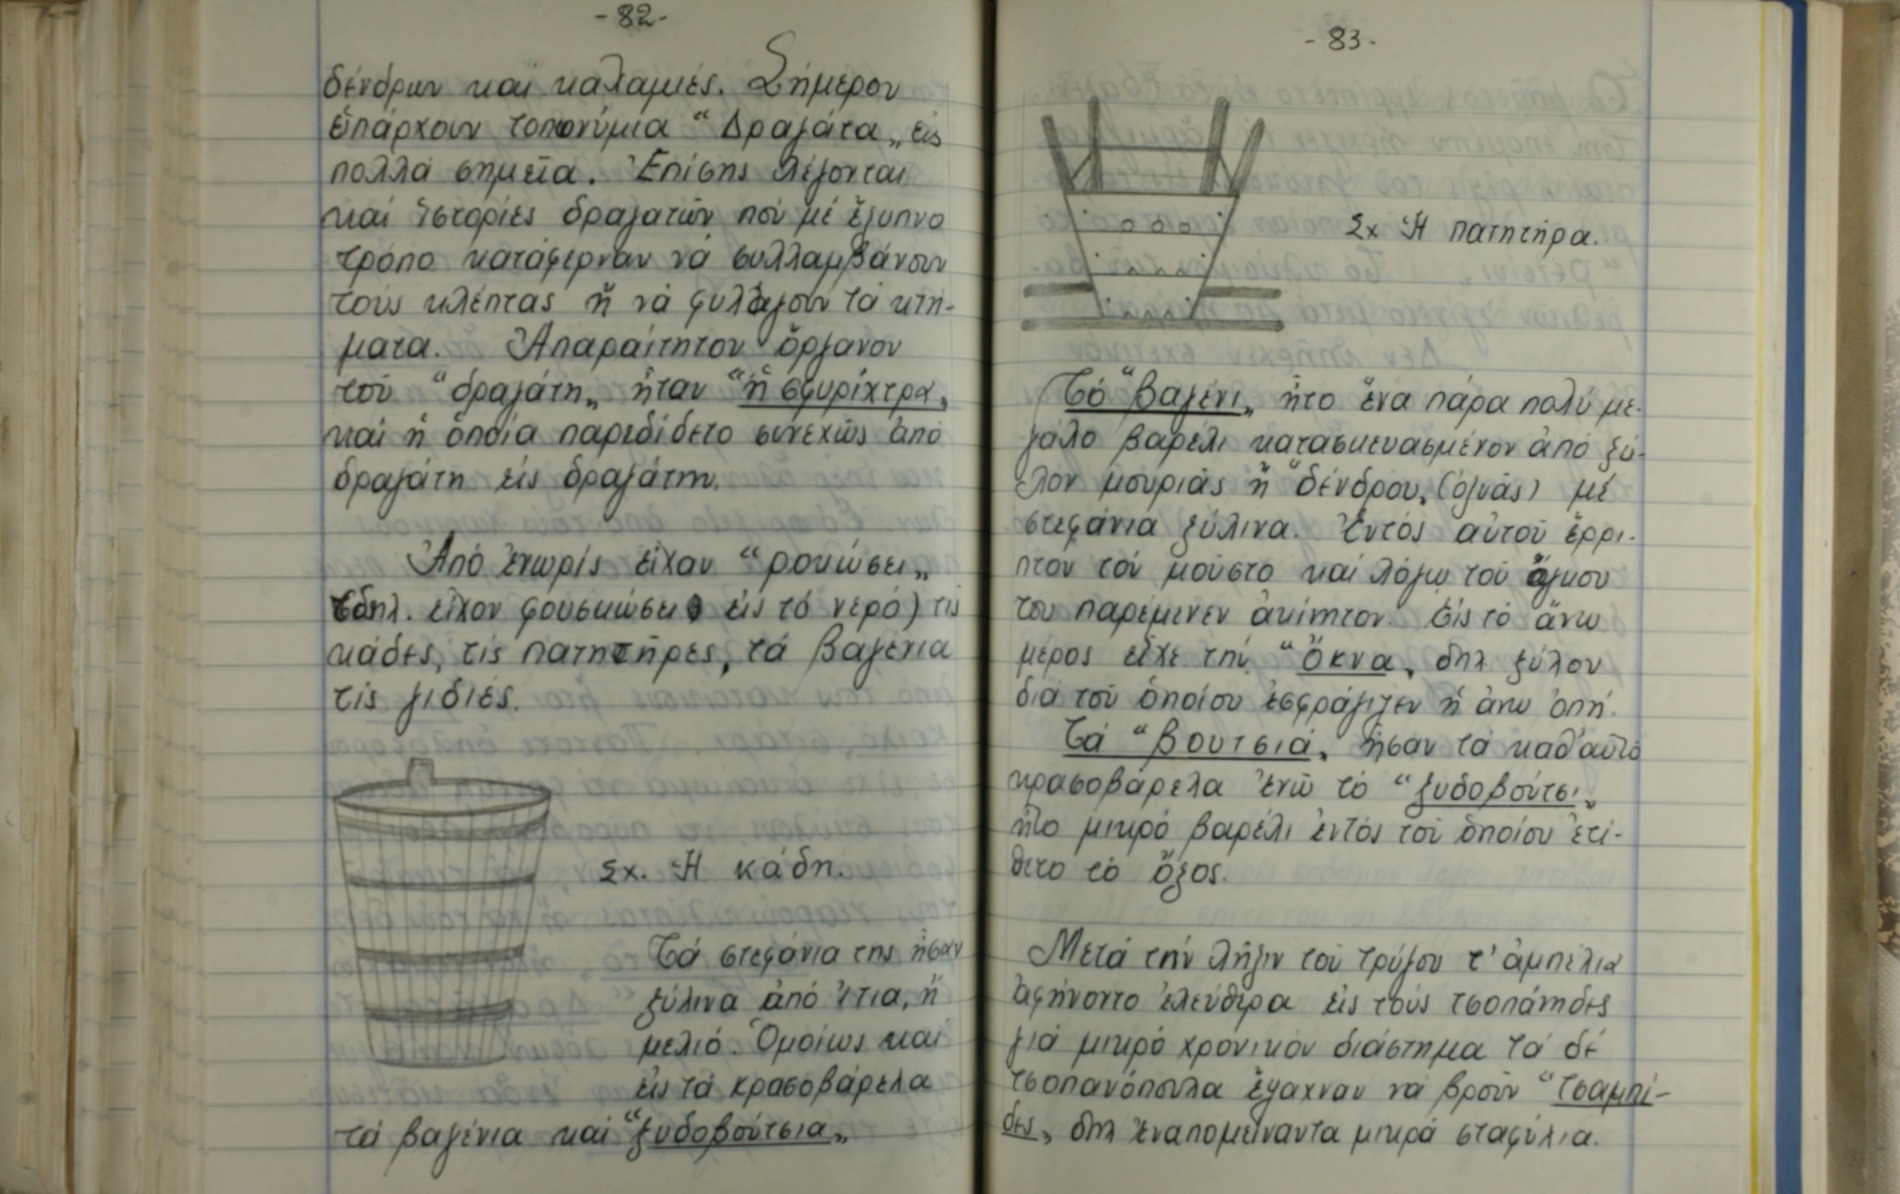 -82-
δένδρων καί καλαμιές. Σήμερον
ὑπάρχουν τοπωνύμια “Δραγάτα„ εἰς
πολλά σημεῖα. Ἐπίσης λέγονται
καί ἱστορίες δραγατῶν πού μέ ἔξυπνο
τρόπο κατάφερναν νά συλλαμβάνουν
τούς κλέπτας ἤ νά φυλάγουν τά κτή-
ματα. Ἀπαραίτητον ὄργανον
τοῦ “δραγάτη„ ἦταν “ἡ σφυρίχτρα„
καί ἡ ὁποία παρεδίδετο συνεχῶς ἀπό
δραγάτη εἰς δραγάτην.
Ἀπό ἐνωρίς εἶχαν “ρουώσει„
δηλ. εἶχον φουσκώσει εἰς τό νερό) τίς
κάδες, τίς πατητῆρες, τά βαγένια
τίς γιδιές.
Σχ. Ἡ κάδη.
Τά στεφάνια της ἦσαν
ξύλινα ἀπό ἰτιά, ἤ
μελιό. Ὁμοίως καί
εἰς τά κρασοβάρελα
τά βαγένια καί “ξυδοβούτσια„
-83-
Σχ Ἡ πατητήρα.
Τό “βαγένι„ ἦτο ἕνα πάρα πολύ με-
γάλο βαρέλι κατασκευασμένον ἀπό ξύ-
λον μουριᾶς ἤ “δένδρου„ (ὀξυᾶς) μέ
στεφάνια ξύλινα. Ἐντός αὐτοῦ ἔρρι-
πτον τόν μοῦστο καί λόγω τοῦ ὄγκου
του παρέμενεν ἀκίνητον. Εἰς τό ἄνω
μέρος εἶχε τήν “ὄκνα„ δηλ ξύλον
διά τοῦ ὁποίου ἐσφράγιζεν ἡ ἄνω ὀπή.
Τά “βουτσιά„ ἦσαν τά καθ' αὐτό
κρασοβάρελα ἐνῶ τό “ξυδοβούτσι„
ἦτο μικρό βαρέλι ἐντός τοῦ ὁποίου ἐτί-
θετο τό ὄξος.
Μετά τήν λῆξιν τοῦ τρύγου τ' ἀμπέλια
ἀφήνοντο ἐλεύθερα εἰς τούς τσοπάνηδες
γιά μικρό χρονικόν διάστημα τά δέ
τσοπανόπουλα ἔψαχναν νά βροῦν “τσαμπί-
δες„ δηλ ἐναπομείναντα μικρά σταφύλια.